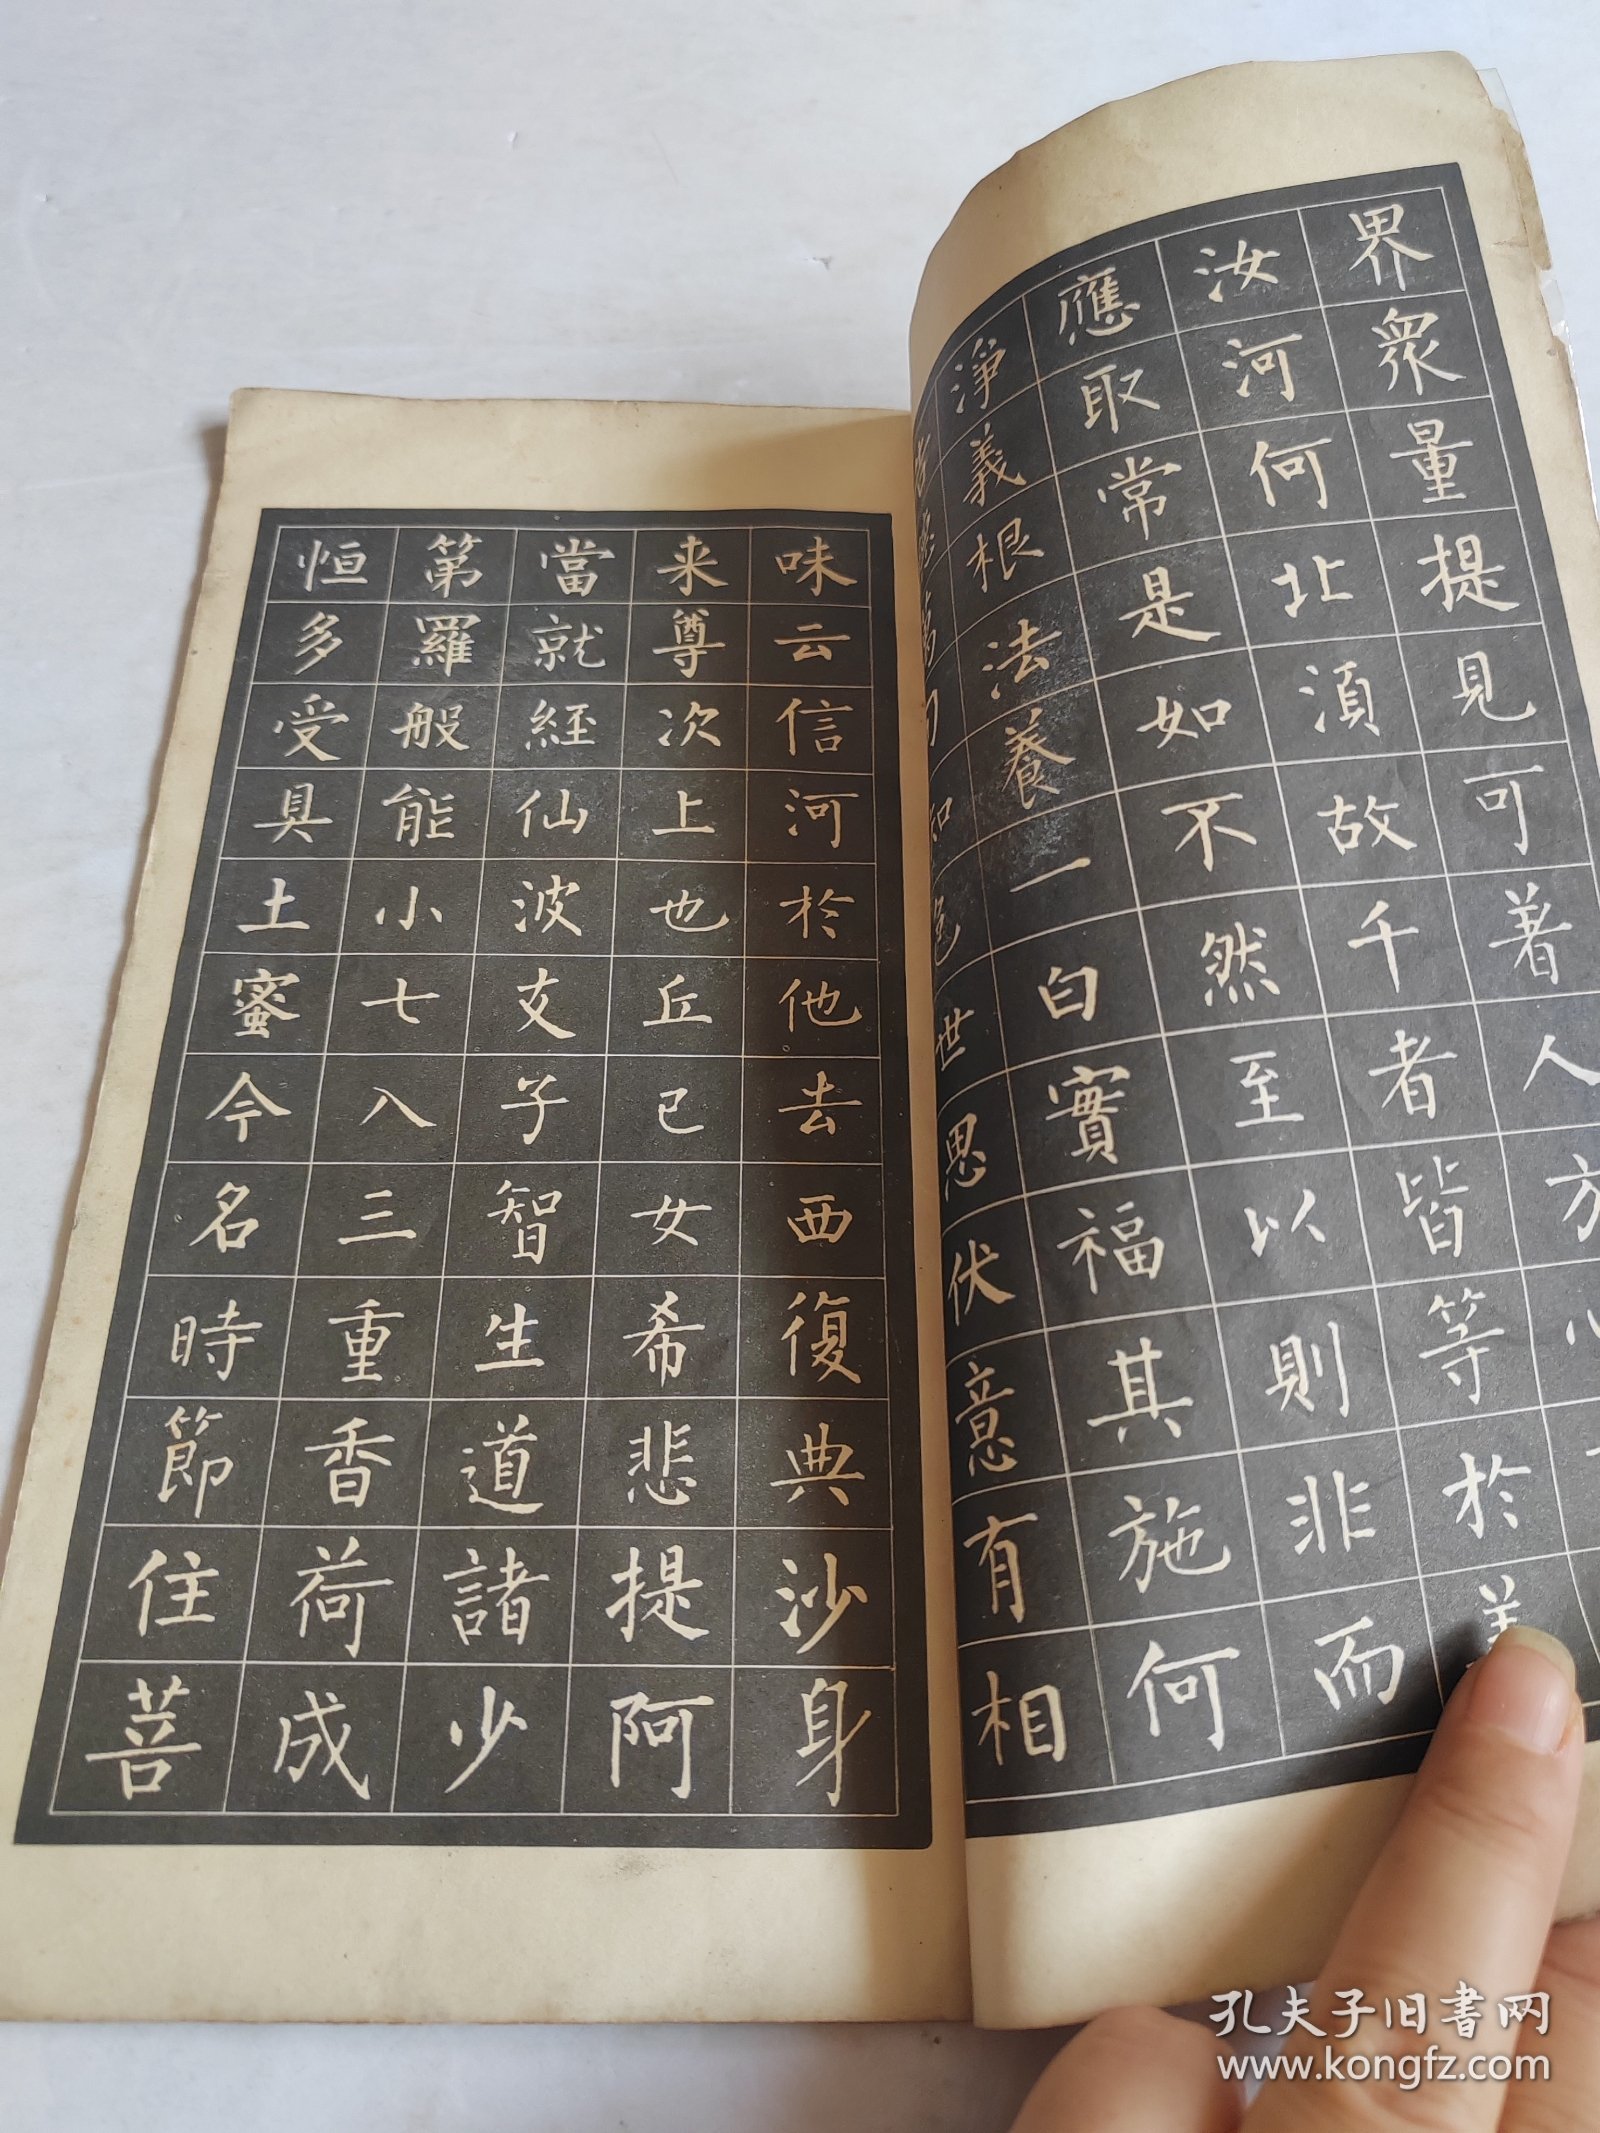 界眾量提見可著人方
汝河何北須故千者皆等於
應取常是如不然至以則非而
淨義根法養一白實福其施何
世思伏意有相
味云信河於他去西復典沙身
来尊次上也丘已女希悲提阿
當就經仙波支子智生道諸少
第羅般能小七八三重香荷成
恒多受具土蜜今名時節住菩
孔夫子旧書网
www.kongfz.com